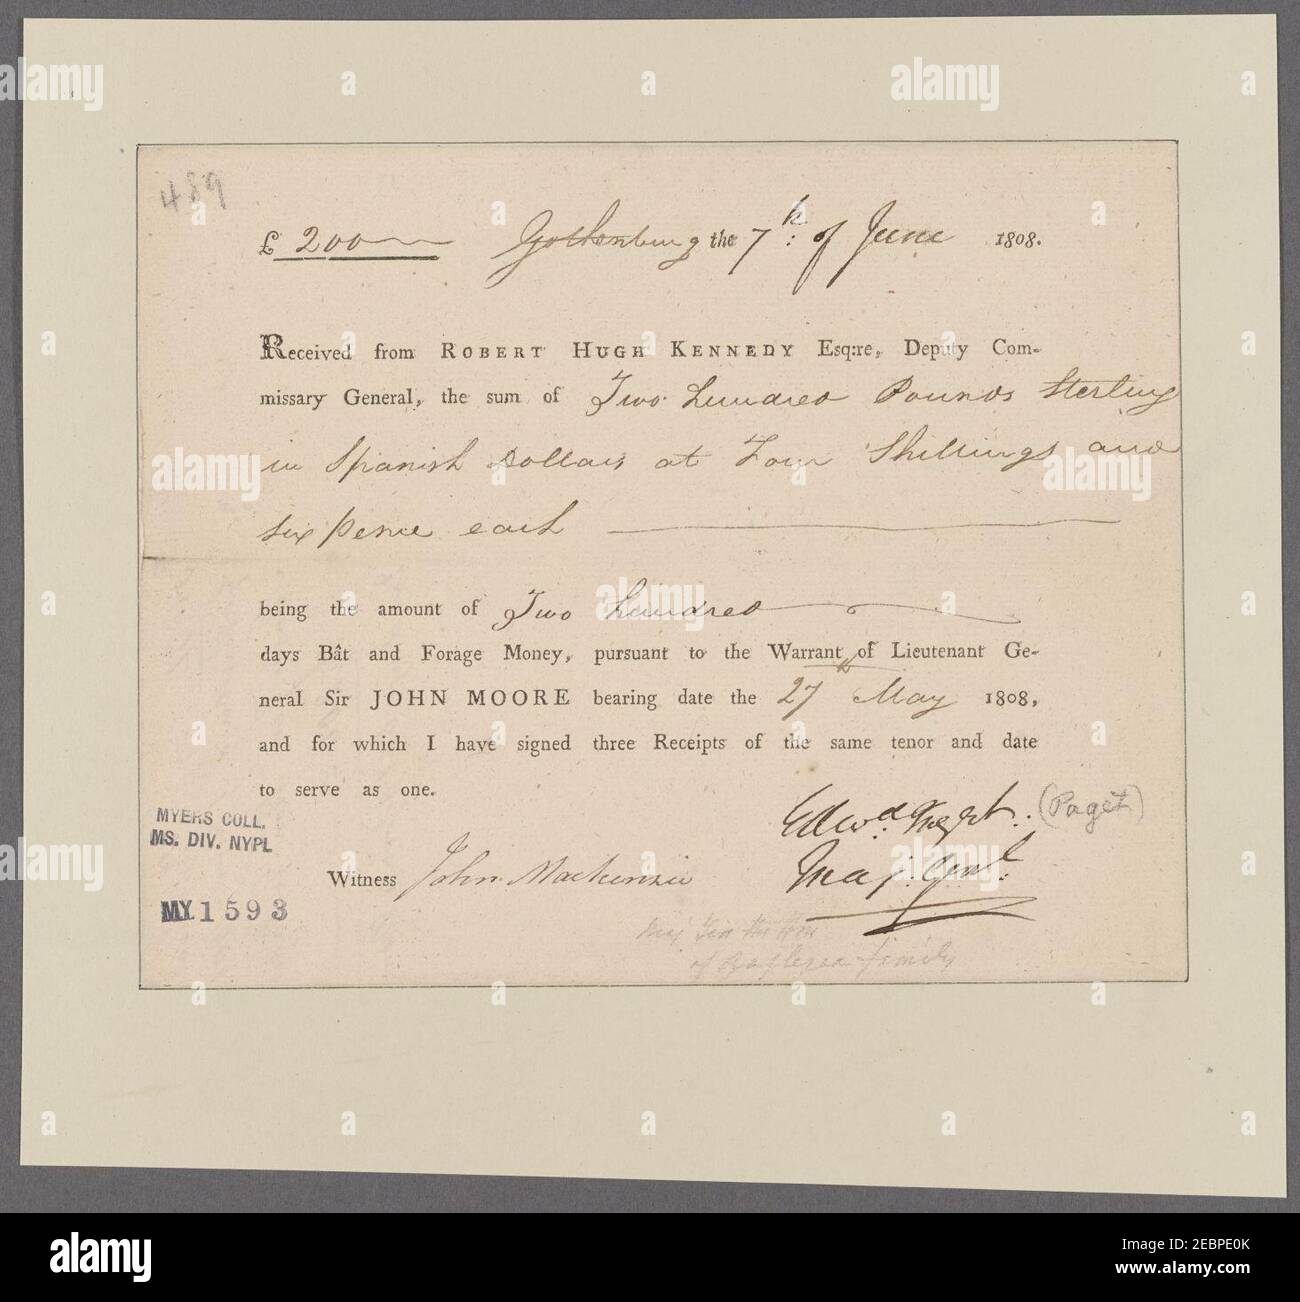 489
£ 200 Gothenburg the 7th: of June 1808.
Received from ROBERT HUGH KENNEDY Esq:re, Deputy Com-
missary General, the sum of Two Hundred Pounds Sterling
in Spanish Dollars at Four Shillings and
six Pence each
being the amount of Two Hundred
days Bât and Forage Money, pursuant to the Warrant of Lieutenant Ge-
neral Sir JOHN MOORE bearing date the 27th May 1808,
and for which I have signed three Receipts of the same tenor and date
to serve as one.
Edwd Paget. (Paget)
Maj: Genl:
MYERS COLL.
MS. DIV. NYPL
Witness John Mackenzie
MY.1593
of family
alamy
Image ID: 2EBPE0K
www.alamy.com